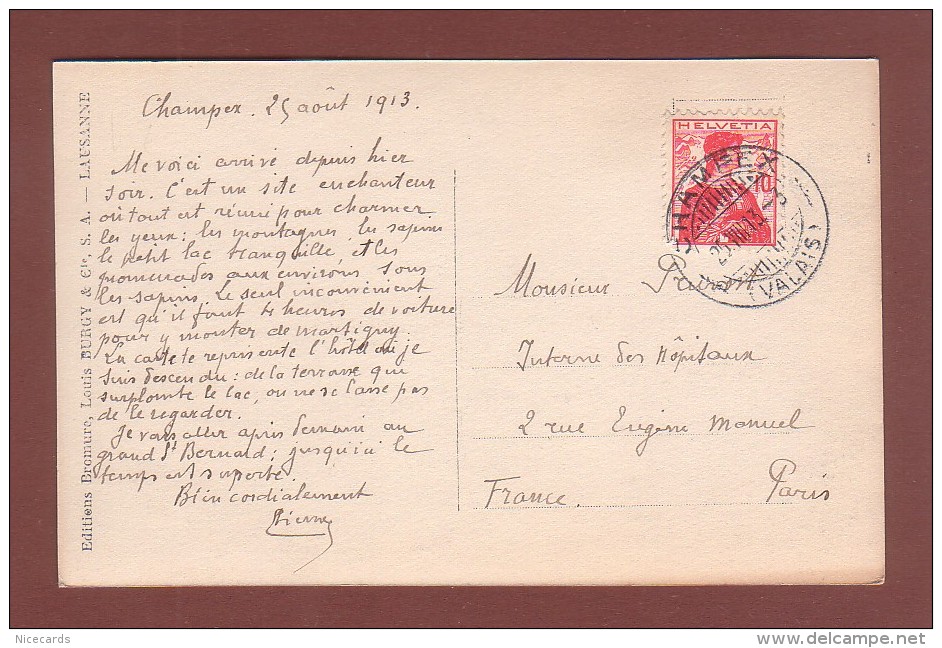 Champex. 25 août 1913.
Me voici arrivé depuis hier
soir. C'est un site enchanteur
où tout est réuni pour charmer
les yeux : les montagnes, les sapins
le petit lac tranquille, et les
promenades aux environs sous
les sapins. Le seul inconvénient
est qu'il faut 4 heures de voiture
pour y monter de Martigny.
La carte te représente l'hôtel où je
suis descendu : de la terrasse qui
surplombe le lac, on ne se lasse pas
de le regarder.
Je vais aller après demain au
grand St Bernard ; jusqu'ici le
temps est superbe.
Bien cordialement
Pierre
Editions Bromure, Louis BURGY & Cie, S. A. — LAUSANNE
HELVETIA
10
CHAMPEX
25.VIII.13 -3
(VALAIS)
Monsieur
Interne des Hôpitaux
2 rue Eugène Manuel
Paris
France.
Nicecards
www.delcampe.net